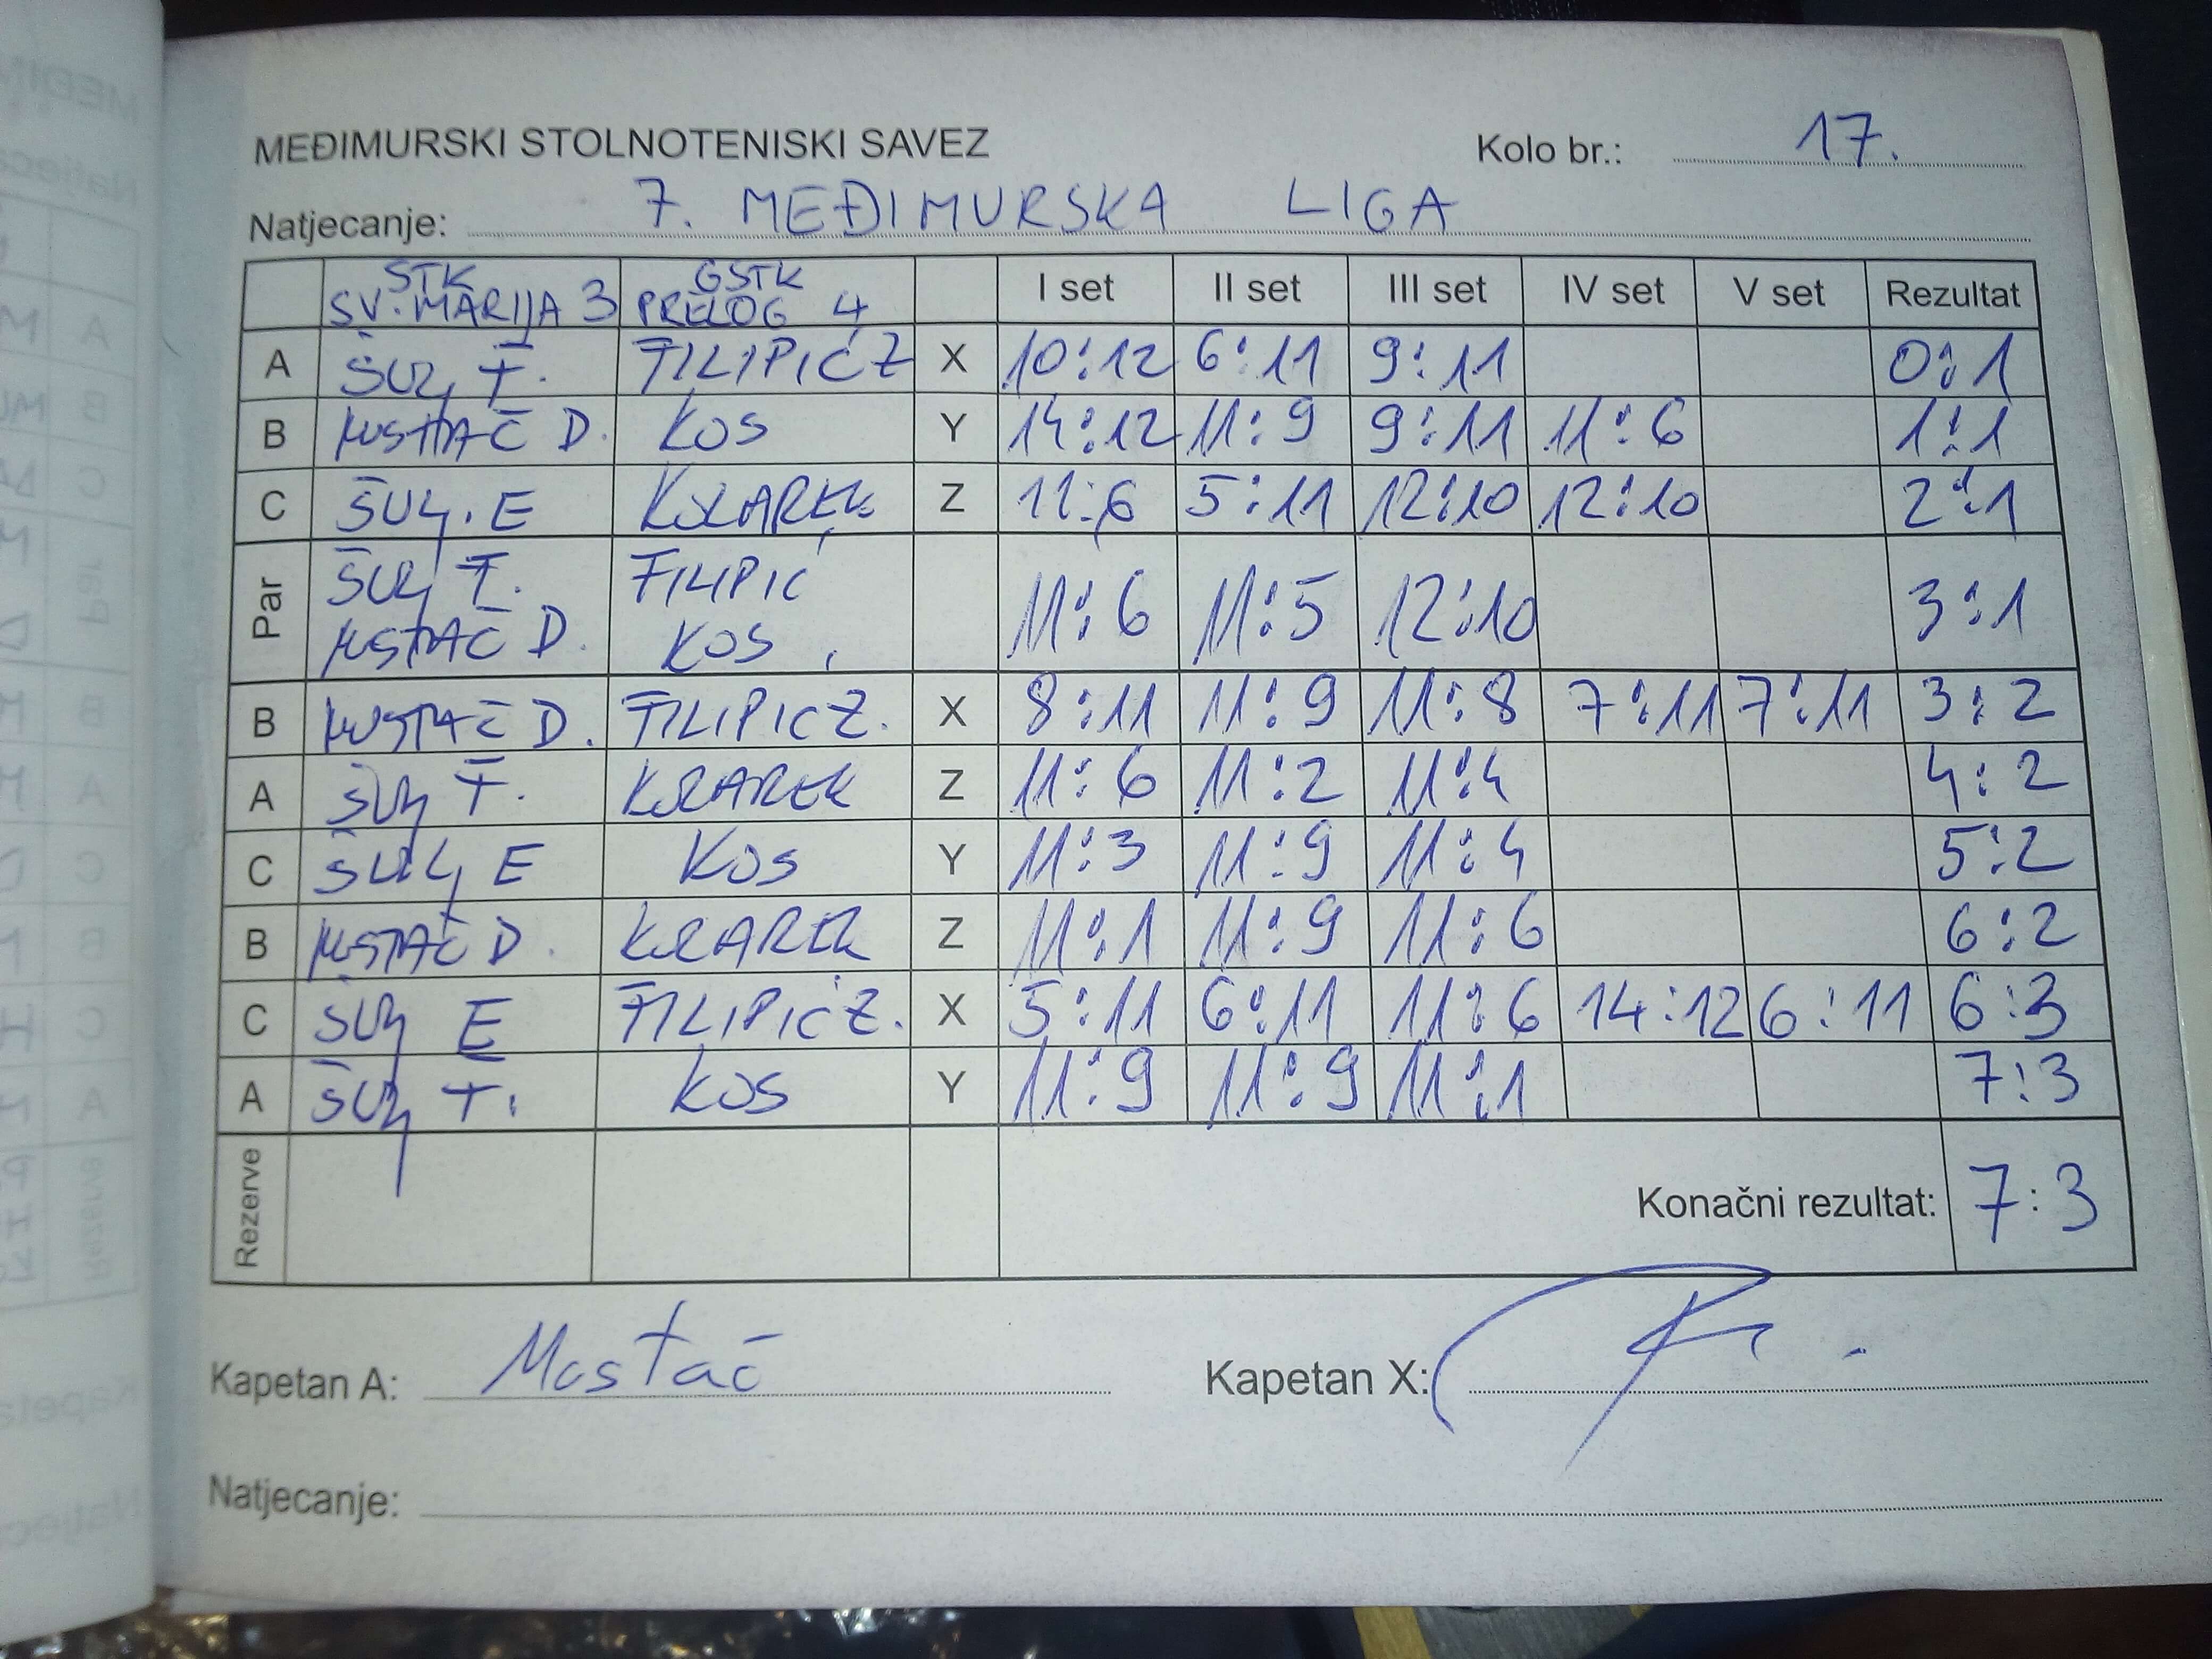 MEĐIMURSKI STOLNOTENISKI SAVEZ Kolo br.: 17.
Natjecanje: 7. MEĐIMURSKA LIGA
STK SV. MARIJA 3 GSTK PRELOG 4 I set II set III set IV set V set Rezultat
A F. FILIPIĆ Z X 10:12 6:11 9:11 0:1
B MUSTAČ D. KOS Y 14:12 11:9 9:11 11:6 1:1
C E Z 11:6 5:11 12:10 12:10 2:1
Par F. FILIPIĆ 11:6 11:5 12:10 3:1
MUSTAČ D. KOS
B MUSTAČ D. FILIPIĆ Z. X 8:11 11:9 11:8 7:11 7:11 3:2
A F. Z 11:6 11:2 11:4 4:2
C E KOS Y 11:3 11:9 11:4 5:2
B MUSTAČ D. Z 11:1 11:9 11:6 6:2
C E FILIPIĆ Z. X 5:11 6:11 11:6 14:12 6:11 6:3
A KOS Y 11:9 11:9 11:1 7:3
Rezerve Konačni rezultat: 7:3
Kapetan A: Mustač Kapetan X:
Natjecanje: